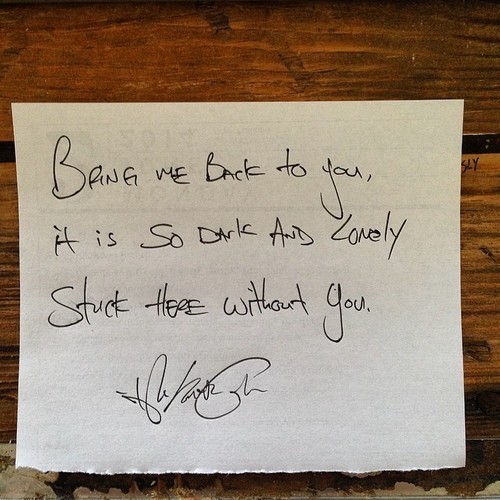 2014
SLY
Bring me Back to you,
it is so Dark And Lonely
Stuck Here without You.